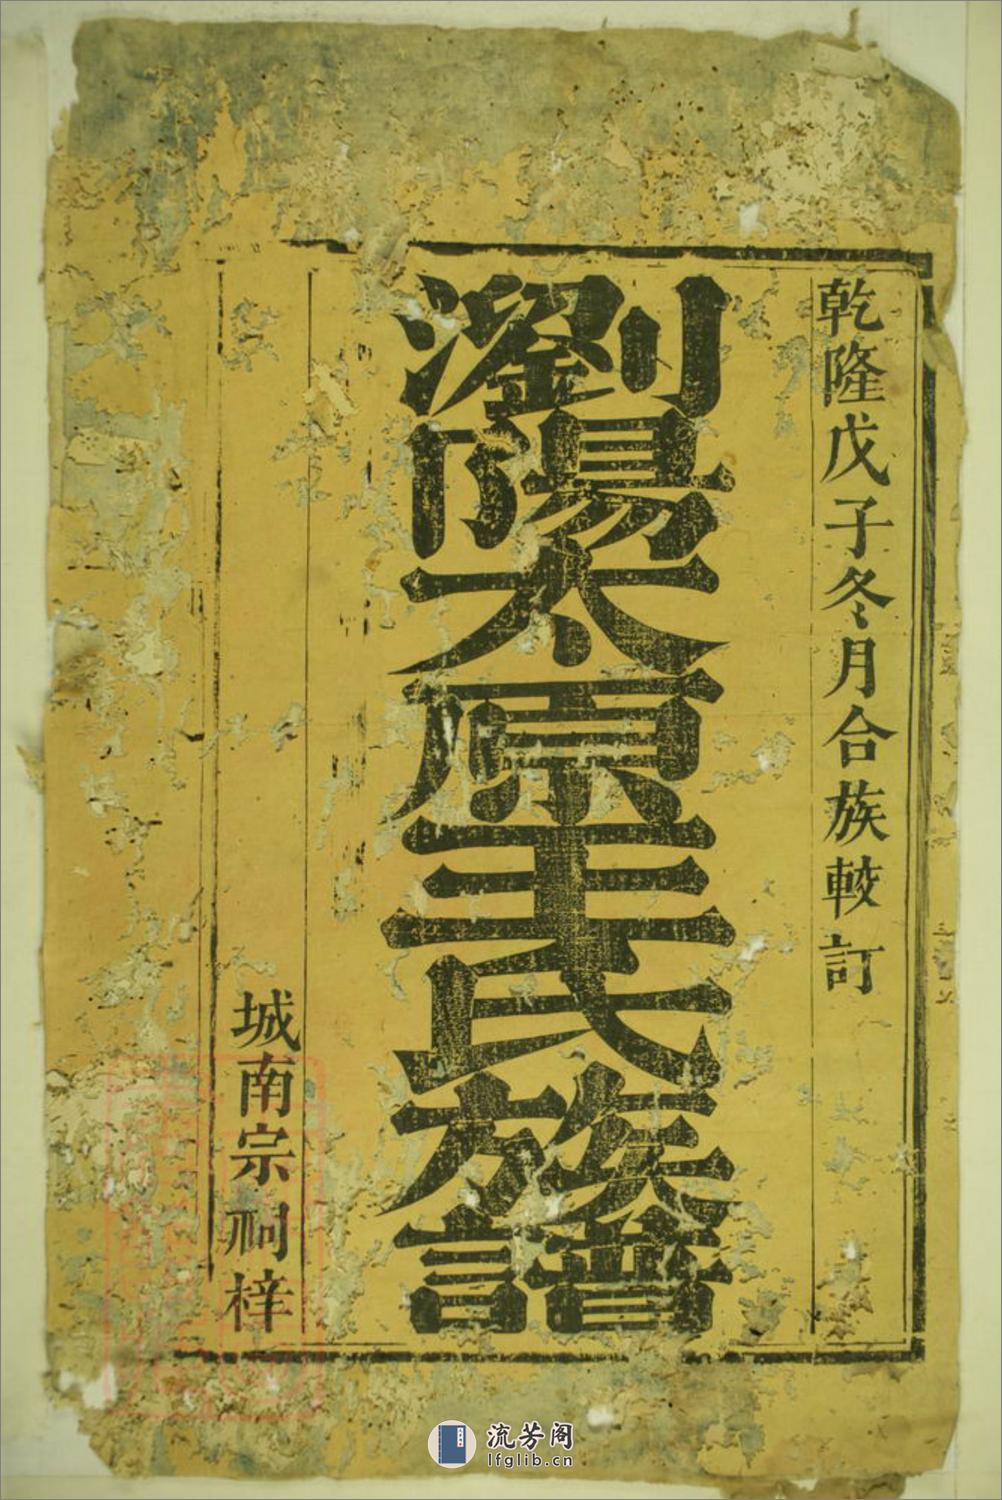 乾隆戊子冬月合族較訂
瀏陽太原王氏族譜
城南宗祠梓
流芳阁
lfglib.cn